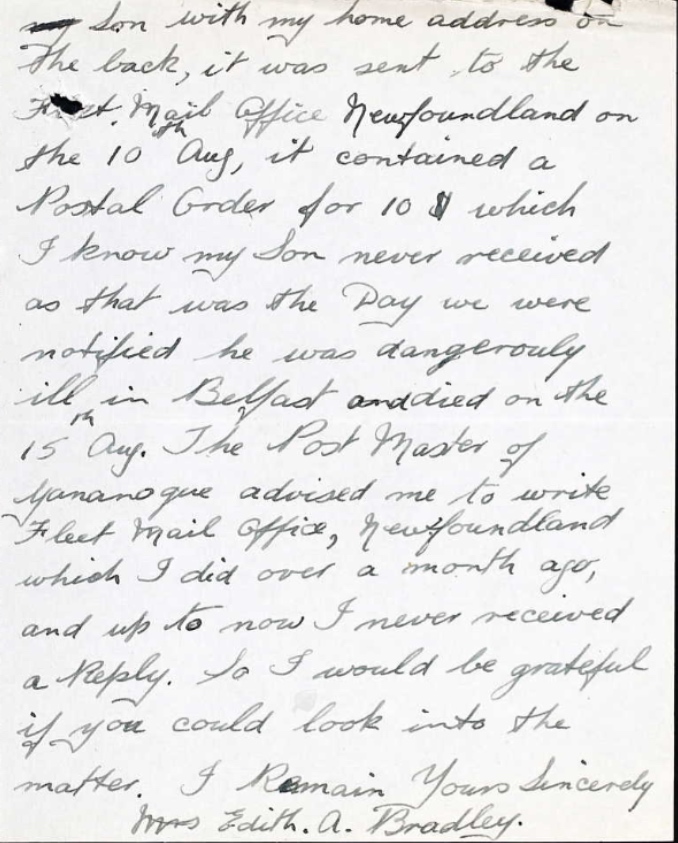 my Son with my home address on
the back, it was sent to the
Fleet Mail Office Newfoundland on
the 10th Aug, it contained a
Postal Order for 10 $ which
I know my Son never received
as that was the Day we were
notified he was dangerouly
ill in Belfast and died on the
15th Aug. The Post Master of
Gananoque advised me to write
Fleet Mail Office, Newfoundland
which I did over a month ago,
and up to now I never received
a Reply. So I would be grateful
if you could look into the
matter. I Remain Yours Sincerely
Mrs Edith. A. Bradley.